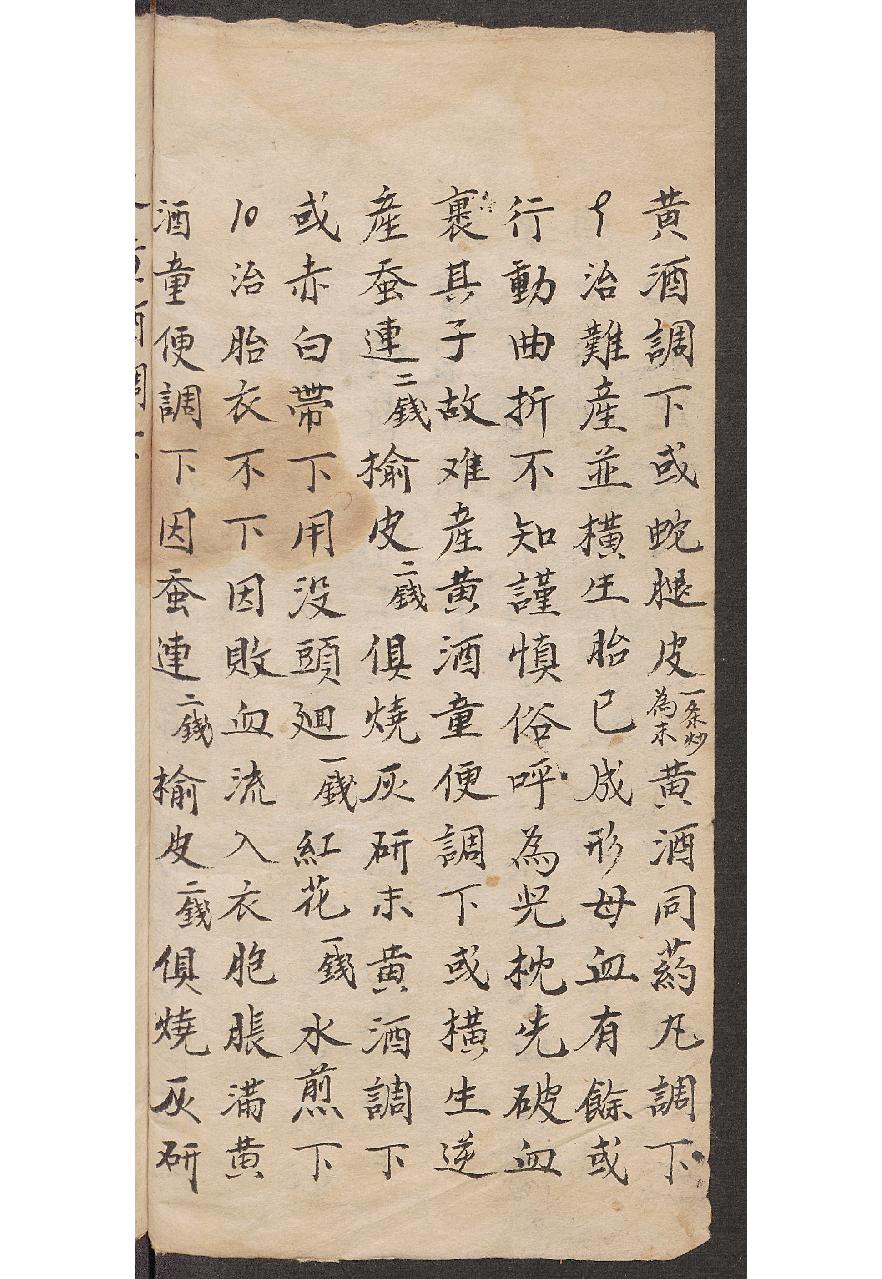 黄酒調下或蛇腿皮一条炒為末黄酒同药丸調下
9治難產並橫生胎已成形母血有餘或
行動曲折不知謹慎俗呼為児枕先破血
裹其子故难產黄酒童便調下或橫生逆
產蚕連二錢榆皮二錢俱燒灰研末黄酒調下
或赤白帶下用没頭廻一錢紅花一錢水煎下
10治胎衣不下因敗血流入衣胞脹滿黄
酒童便調下因蚕連二錢榆皮二錢俱燒灰研